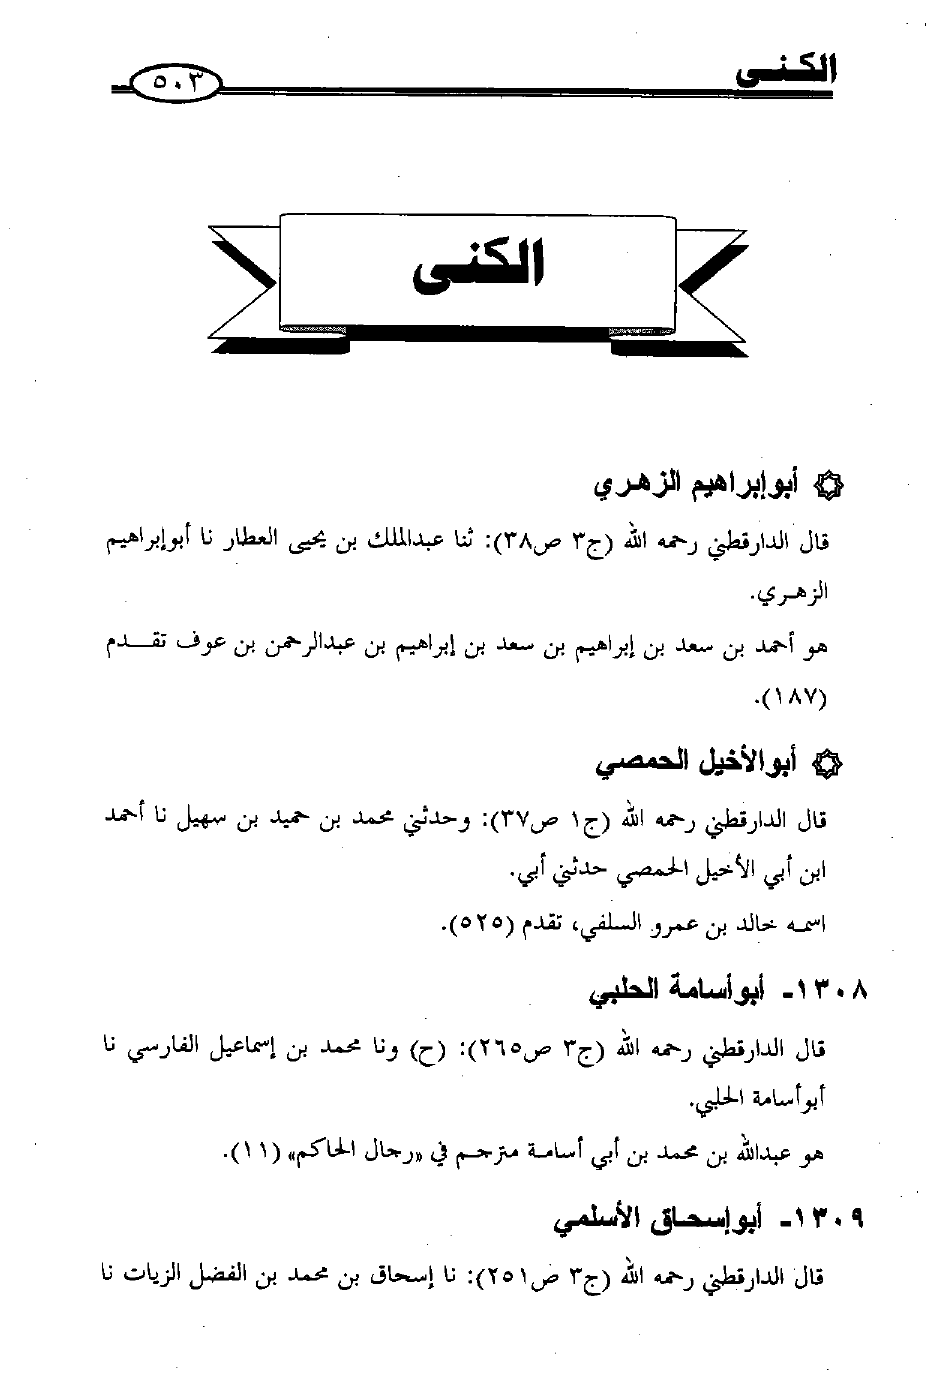 الكنى
٥٠٣
الكنى
أبوإبراهيم الزهري
قال الدارقطني رحمه الله (ج٣ ص٣٨): ثنا عبدالملك بن يحيى العطار نا أبوإبراهيم
الزهري.
هو أحمد بن سعد بن إبراهيم بن سعد بن إبراهيم بن عبدالرحمن بن عوف تقدم
(١٨٧).
أبوالأخيل الحمصي
قال الدارقطني رحمه الله (ج١ ص٣٧): وحدثني محمد بن حميد بن سهيل نا أحمد
ابن أبي الأخيل الحمصي حدثني أبي.
اسمه خالد بن عمرو السلفي، تقدم (٥٢٥).
١٣٠٨- أبوأسامة الحلبي
قال الدارقطني رحمه الله (ج٣ ص٢٦٥): (ح) ونا محمد بن إسماعيل الفارسي نا
أبوأسامة الحلبي.
هو عبدالله بن محمد بن أبي أسامة مترجم في «رجال الحاكم» (١١).
١٣٠٩- أبوإسحاق الأسلمي
قال الدارقطني رحمه الله (ج٣ ص٢٥١): نا إسحاق بن محمد بن الفضل الزيات نا